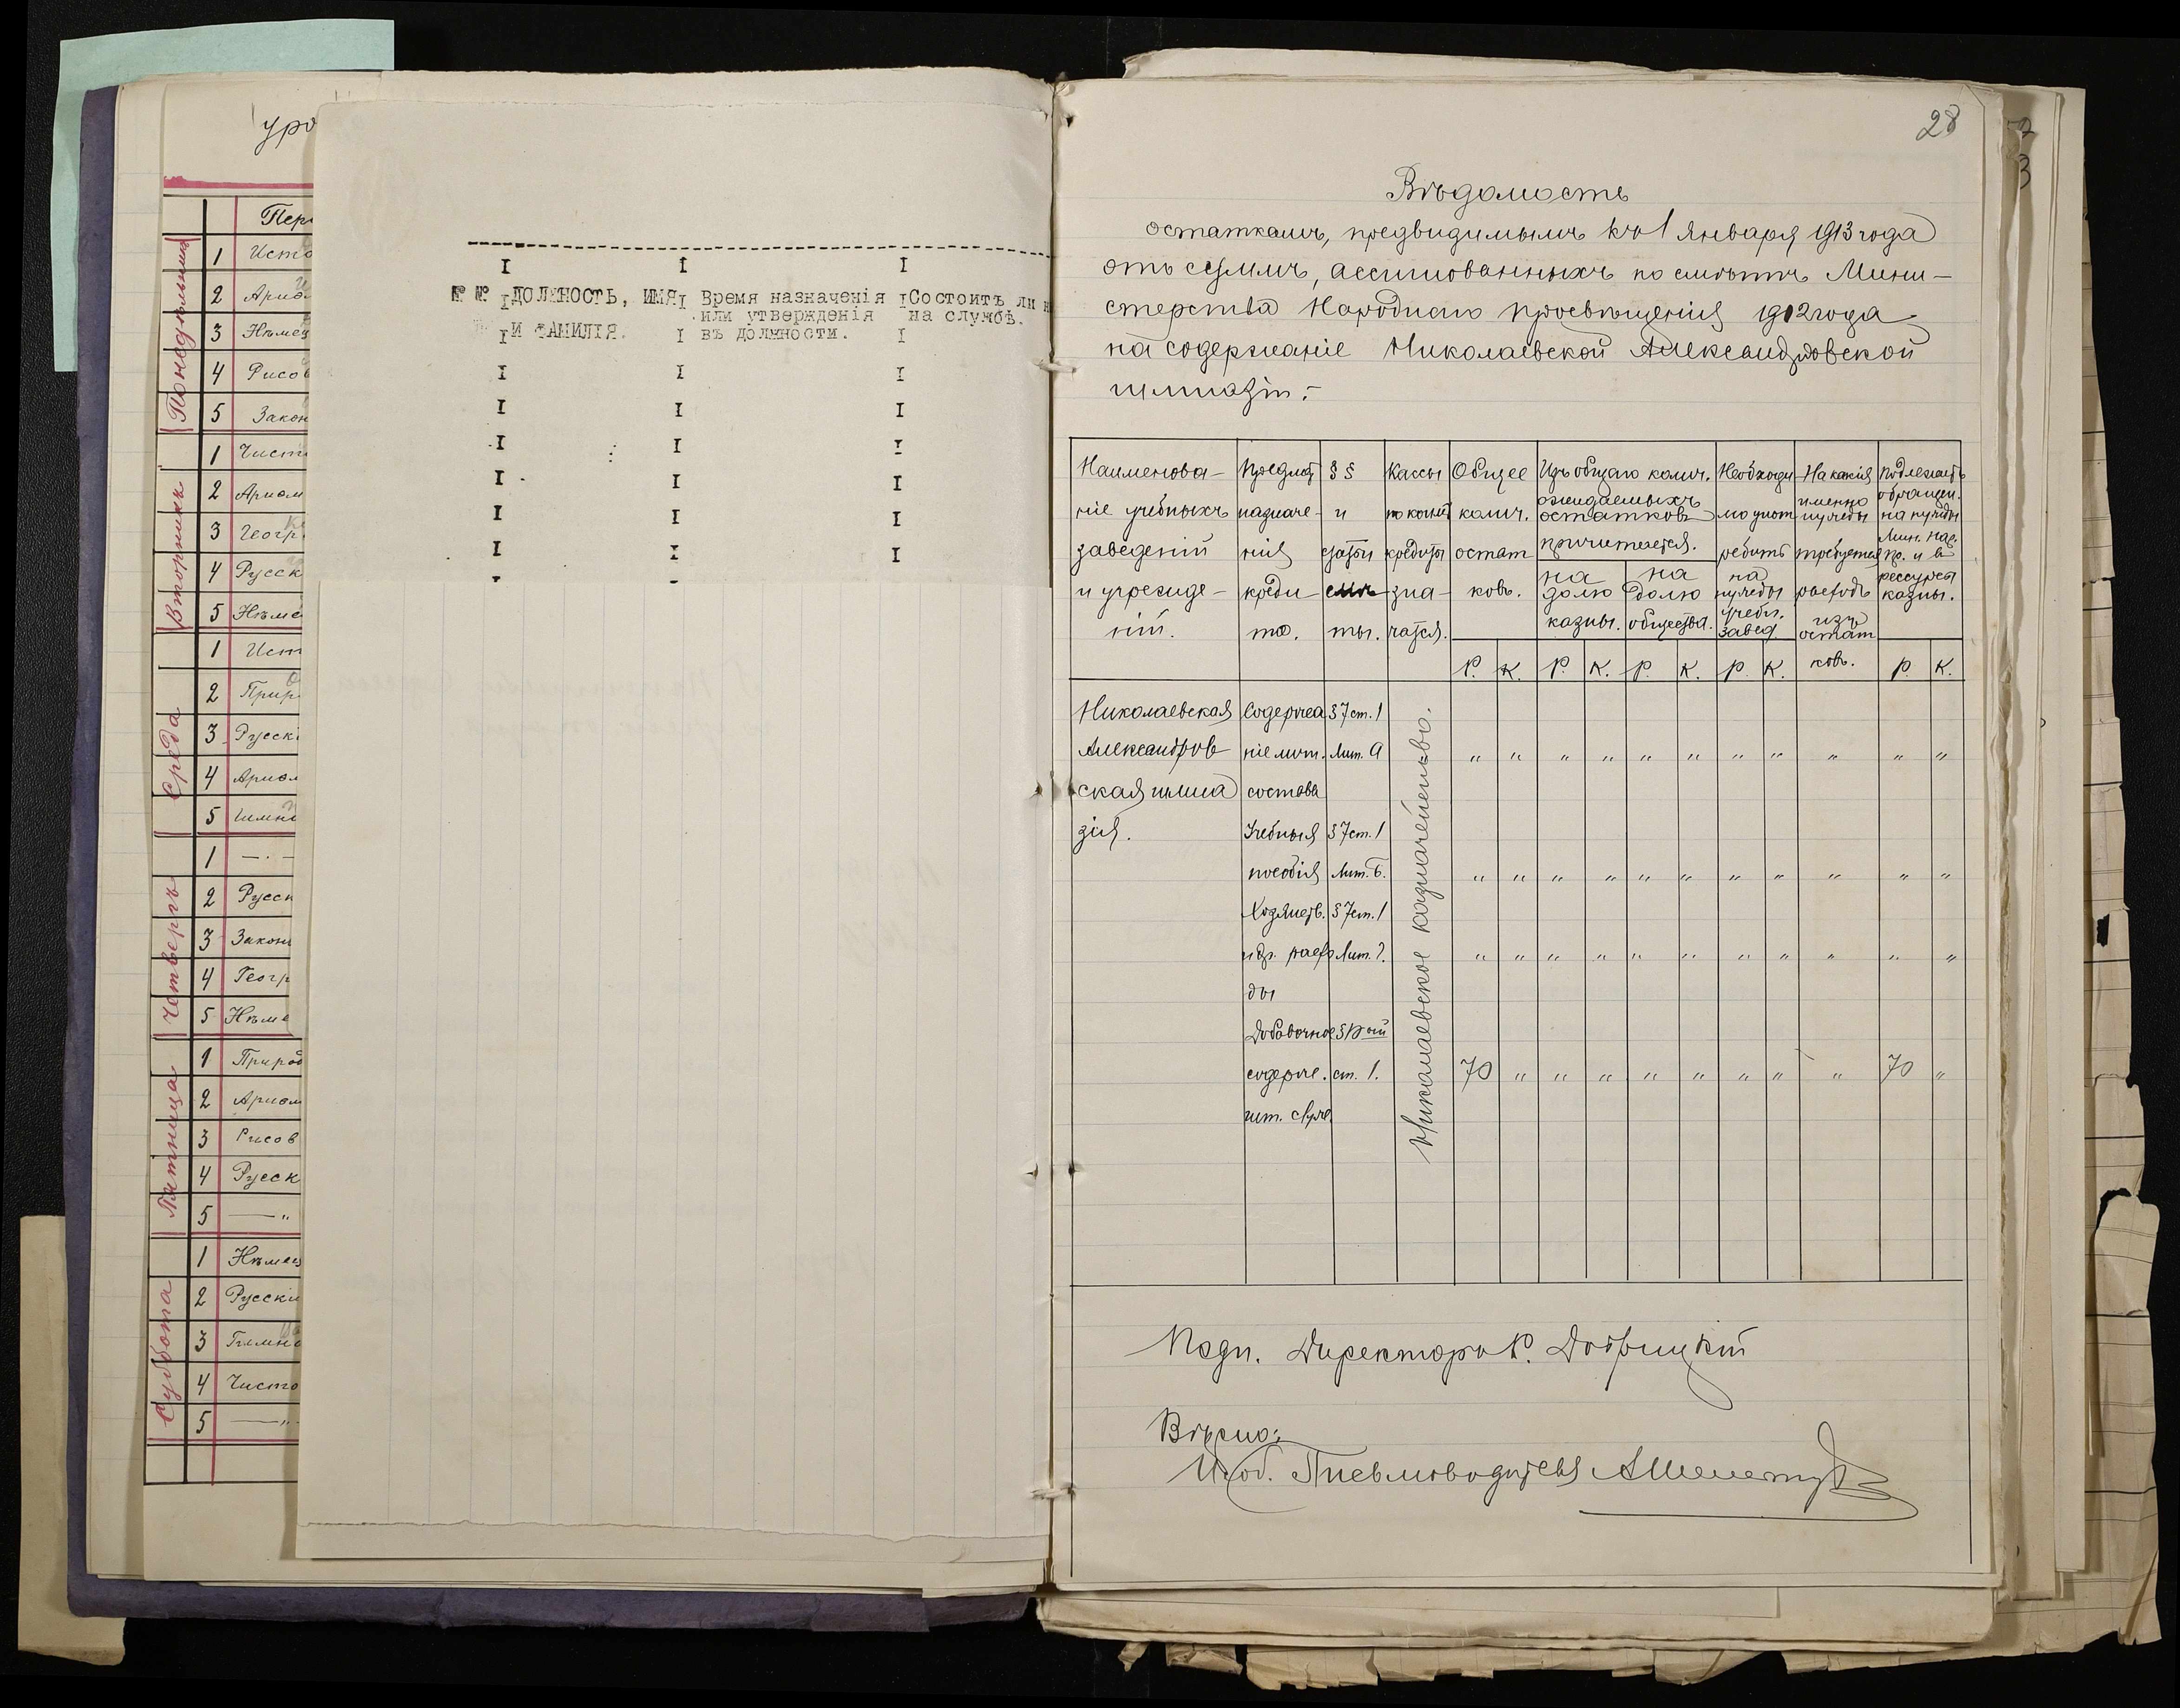 уро
Пер
Понедѣльникъ
1 Исто
2 Ариѳ
3 Нѣмец
4 Рисов
5 Закон
Вторникъ
1 Чист
2 Ариѳм
3 Геогр
4 Русск
5 Нѣме
Среда
1 Ист
2 Прир
3 Русскі
4 Ариѳ
5 Гимн
Четвергъ
1 —
2 Русск
3 Закон
4 Геогр
5 Нѣме
Пятница
1 Природ
2 Ариѳм
3 Рисов
4 Русск
5 — "
Суббота
1 Нѣмец
2 Русскі
3 Гимна
4 Чисто
5 — "
№ № ДОЛЖНОСТЬ, ИМЯ
И ФАМИЛІЯ.
Время назначенія
или утвержденія
въ должности.
Состоитъ ли н
на службѣ.
28
Вѣдомость
остаткамъ, предвидимымъ къ 1 Января 1913 года
отъ суммъ, ассигнованныхъ по смѣтѣ Мини-
стерства Народнаго просвѣщенія 1912 года
на содержаніе Николаевской Александровской
гимназіи.-
Наименова-
ніе учебныхъ
заведеній
и учрежде-
ній.
Предметъ
назначе-
нія
креди-
та.
§ §
и
статьи
смѣ-
ты.
Кассы
по коимъ
кредиты
зна-
чатся.
Общее
колич.
остат
ковъ.
Изъ общаго колич.
ожидаемыхъ
остатковъ
причитается.
на
долю
казны.
на
долю
общества.
Необходи
мо употребить
на
нужды
учебн.
завед.
На какія
именно
нужды
требуется
расходъ
изъ
остат
ковъ.
Подлежитъ
обращен.
на нужды
Мин. нар.
пр. и въ
рессурсы
казны.
Р. К. Р. К. Р. К. Р. К. Р. К.
Николаевская
Александров
ская гимна
зія.
Содержа
ніе личн.
состава
§ 7 ст. 1
Лит. А
" " " " " " " " " " "
Учебныя
пособія
§ 7 ст. 1
Лит. Б.
" " " " " " " " " " "
Хозяйств.
и др. расхо
ды
§ 7 ст. 1
Лит.
" " " " " " " " " " "
Добавочное
содерж.
ст. 1.
70 " " " " " " " " 70 "
Николаевское казначейство.
Подп. Директоръ К. Добрицкій
Вѣрно:
И. об. Письмоводителя